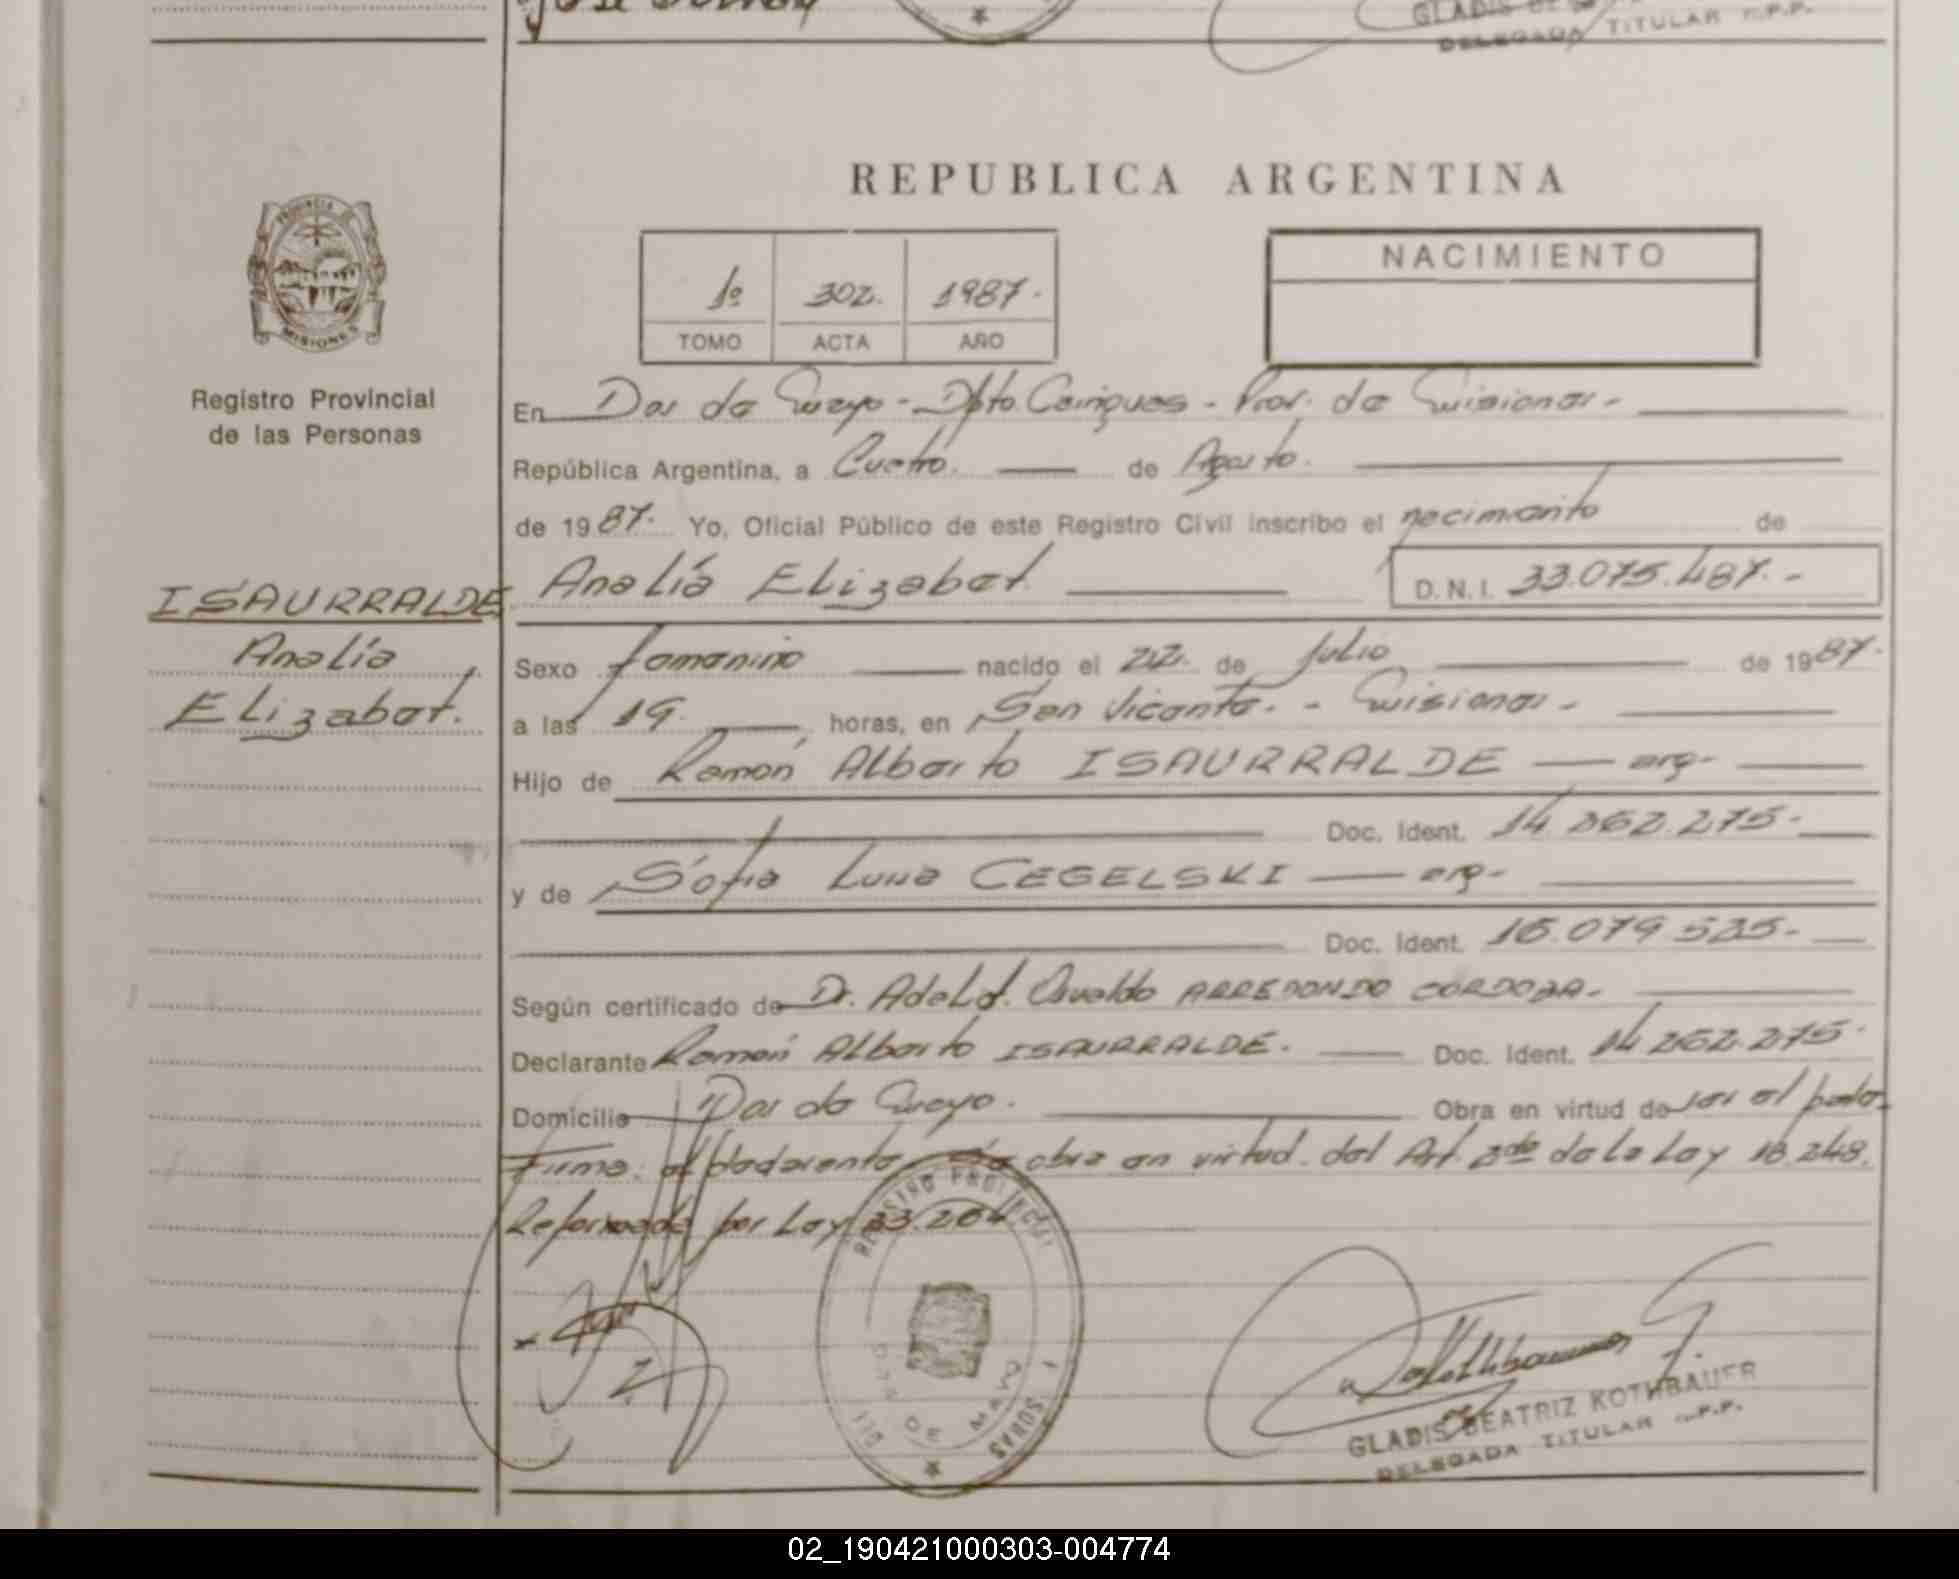 GLADIS BE
DELEGADA TITULAR R.P.P.
REPUBLICA ARGENTINA
PROVINCIA DE
MISIONES
Registro Provincial
de las Personas
1º 302. 1987.
TOMO ACTA AÑO
NACIMIENTO
En Dos de Mayo - Dpto. Cainguas - Prov. de Misiones -
República Argentina, a Cuatro. de Agosto.
de 1987. Yo, Oficial Público de este Registro Civil inscribo el nacimiento de
ISAURRALDE
Analía
Elizabet.
Analía Elizabet D.N.I. 33.075.487.-
Sexo femenino nacido el 22. de Julio de 1987.
a las 19. horas, en San Vicente. - Misiones -
Hijo de Ramón Alberto ISAURRALDE — arg-
Doc. Ident. 14.262.275-
y de Sofía Luisa CEGELSKI — arg-
Doc. Ident. 16.079.535-
Según certificado de Dr. Adeld. Osvaldo ARREDONDO CORDOBA-
Declarante Ramón Alberto ISAURRALDE. Doc. Ident. 14.262.275.
Domicilio Dos de Mayo. Obra en virtud de ser el padre-
Firma: el declarante, obra en virtud del Art. 2do de la Ley 18.248.
Reformada por Ley 23.264
REGISTRO PROVINCIAL
DOS DE MAYO
GLADIS BEATRIZ KOTHBAUER
DELEGADA TITULAR R.P.P.
02_190421000303-004774